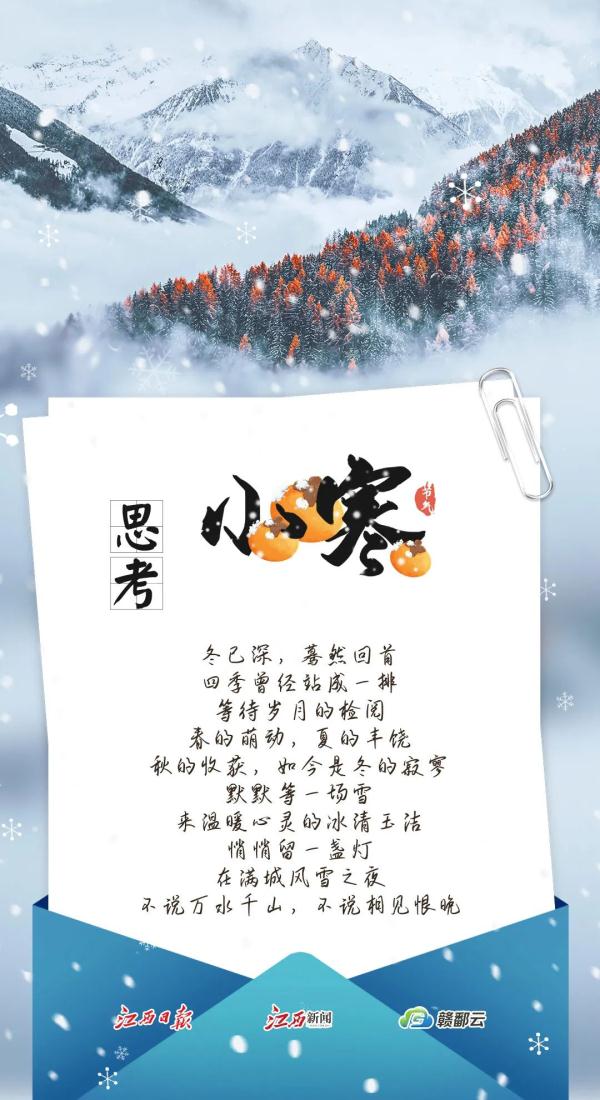 小寒
节气
思考
冬已深，蓦然回首
四季曾经站成一排
等待岁月的检阅
春的萌动，夏的丰饶
秋的收获，如今是冬的寂寥
默默等一场雪
来温暖心灵的冰清玉洁
悄悄留一盏灯
在满城风雪之夜
不说万水千山，不说相见恨晚
江西日报
江西新闻
赣鄱云